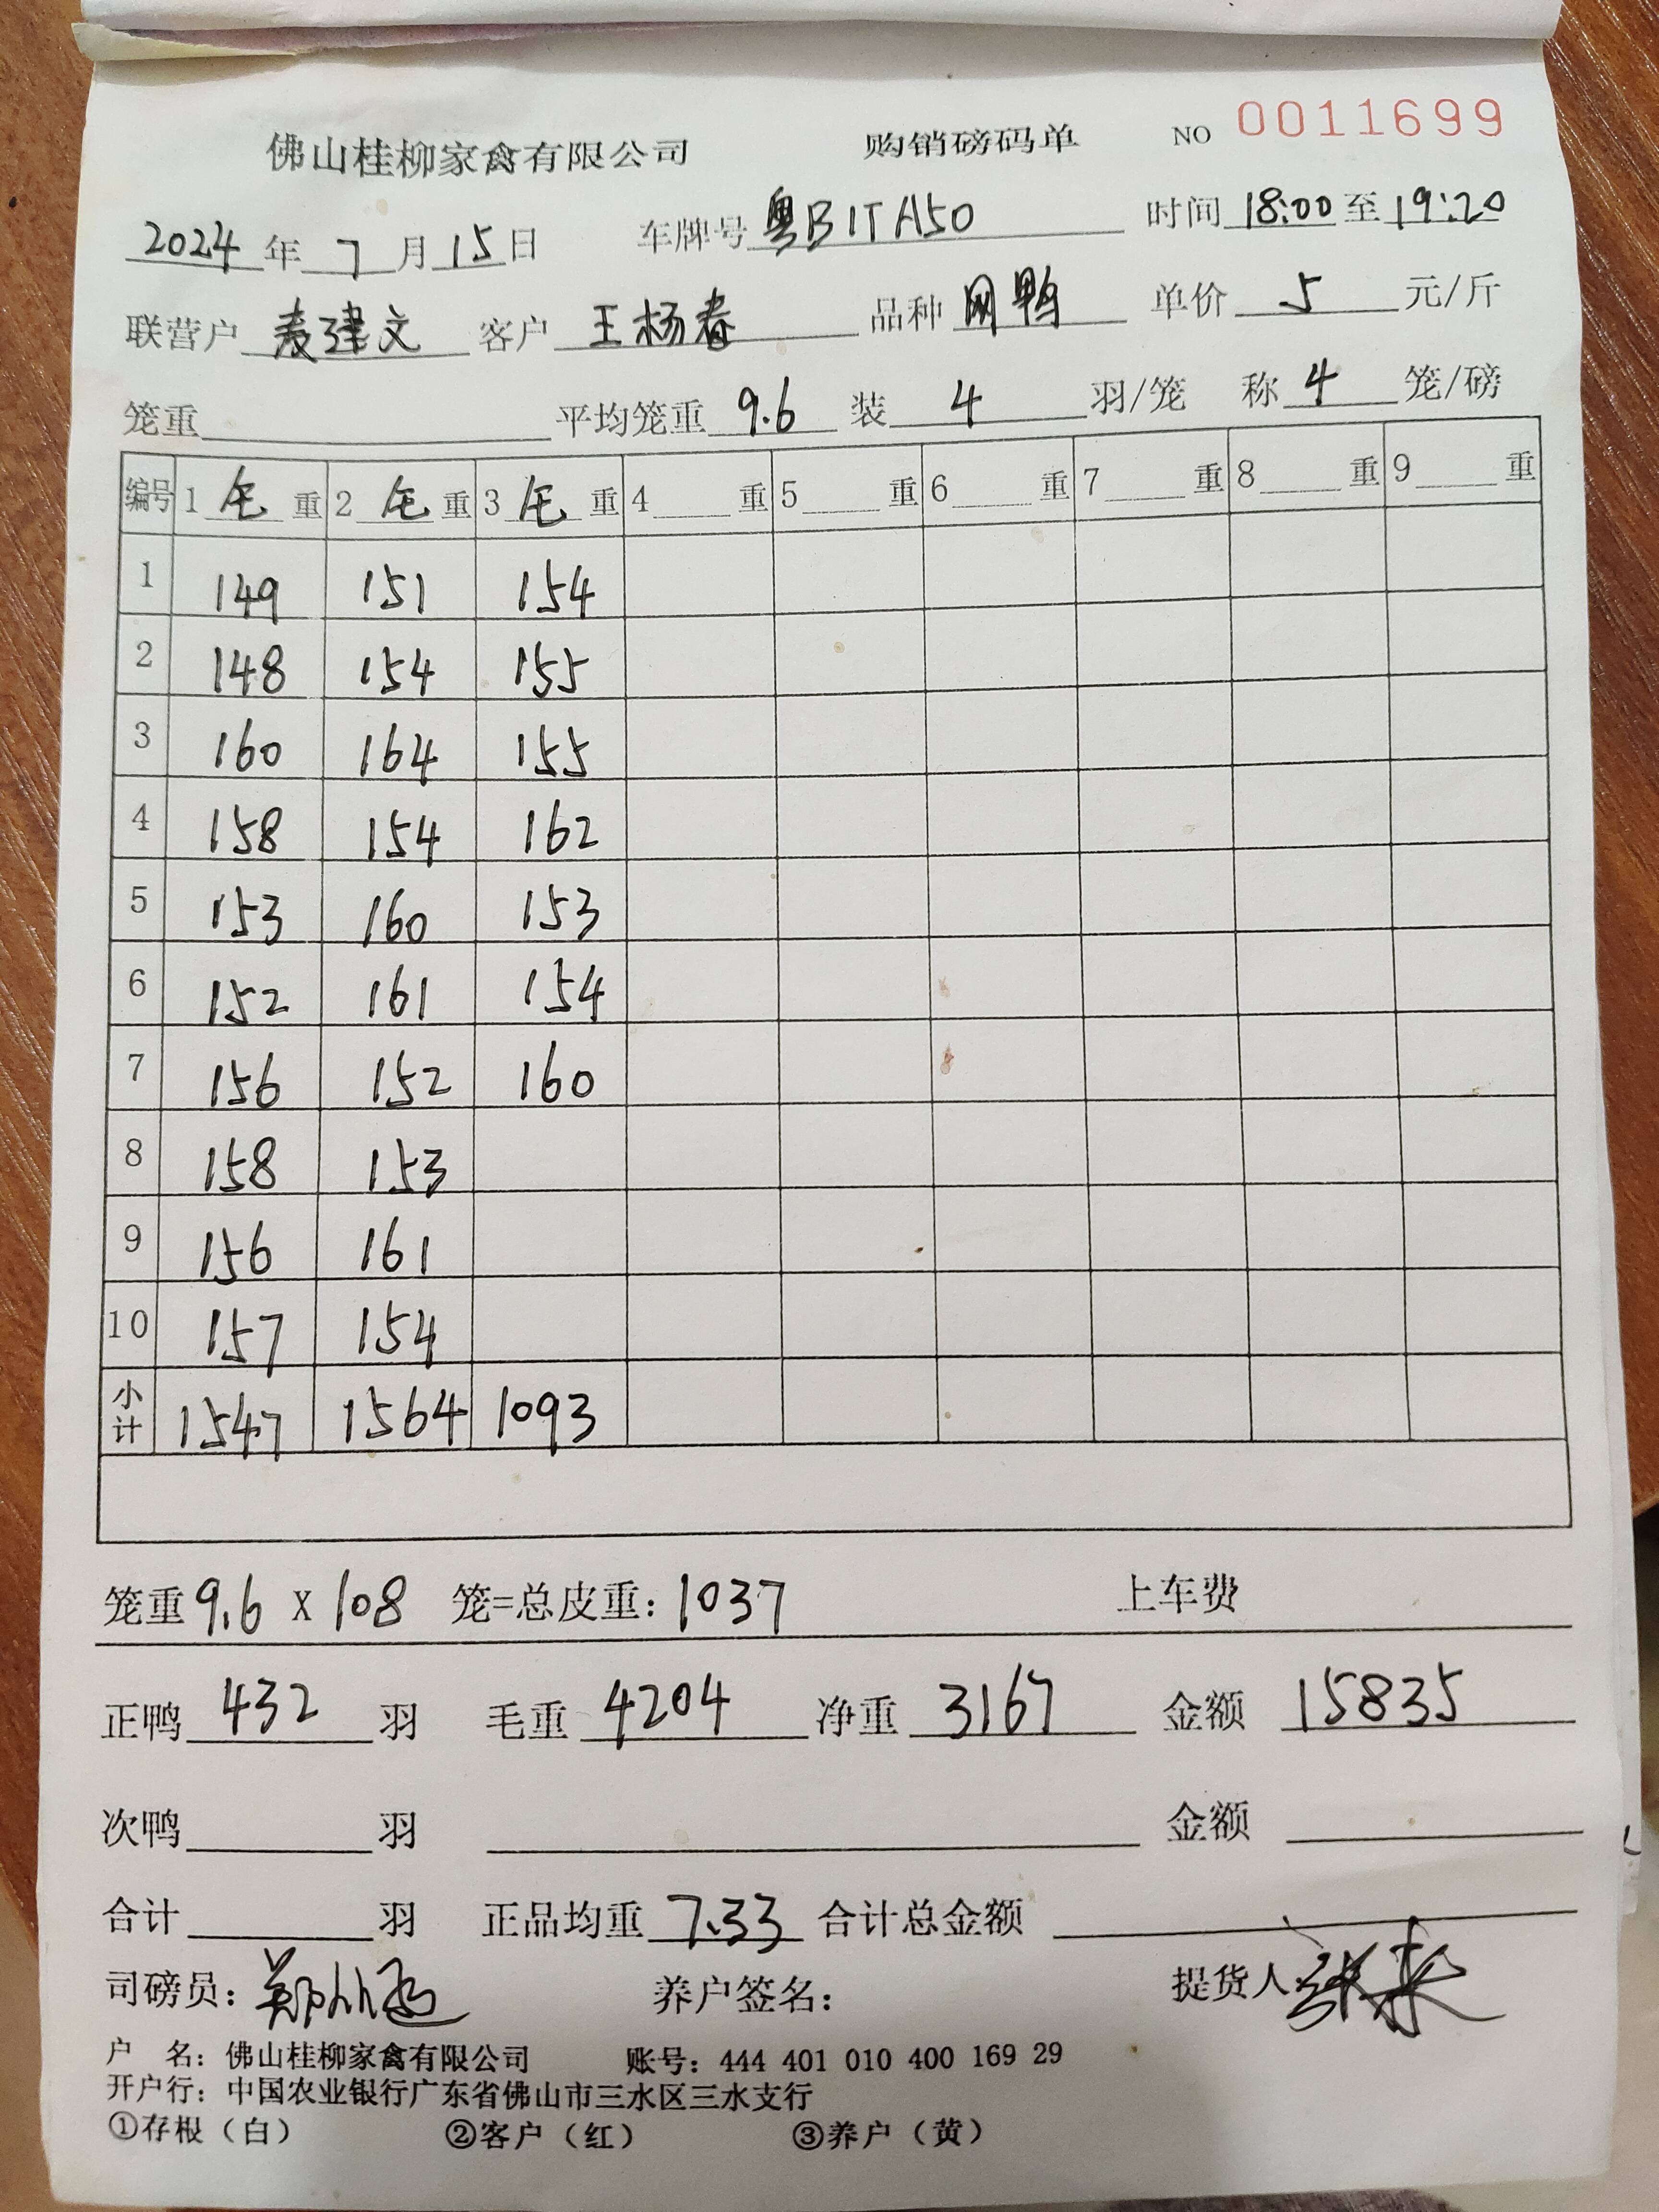 佛山桂柳家禽有限公司 购销磅码单 NO 0011699
2024 年 7 月 15 日 车牌号 粤B1TA50 时间 18:00 至 19:20
联营户 麦建文 客户 王杨春 品种 网鸭 单价 5 元/斤
笼重 平均笼重 9.6 装 4 羽/笼 称 4 笼/磅
编号 1 毛 重 2 毛 重 3 毛 重 4 重 5 重 6 重 7 重 8 重 9 重
1 149 151 154
2 148 154 155
3 160 164 155
4 158 154 162
5 153 160 153
6 152 161 154
7 156 152 160
8 158 153
9 156 161
10 157 154
小计 1547 1564 1093
笼重 9.6 X 108 笼=总皮重: 1037 上车费
正鸭 432 羽 毛重 4204 净重 3167 金额 15835
次鸭 羽 金额
合计 羽 正品均重 7.33 合计总金额
司磅员: 养户签名: 提货人:
户 名: 佛山桂柳家禽有限公司 账号: 444 401 010 400 169 29
开户行: 中国农业银行广东省佛山市三水区三水支行
①存根（白） ②客户（红） ③养户（黄）